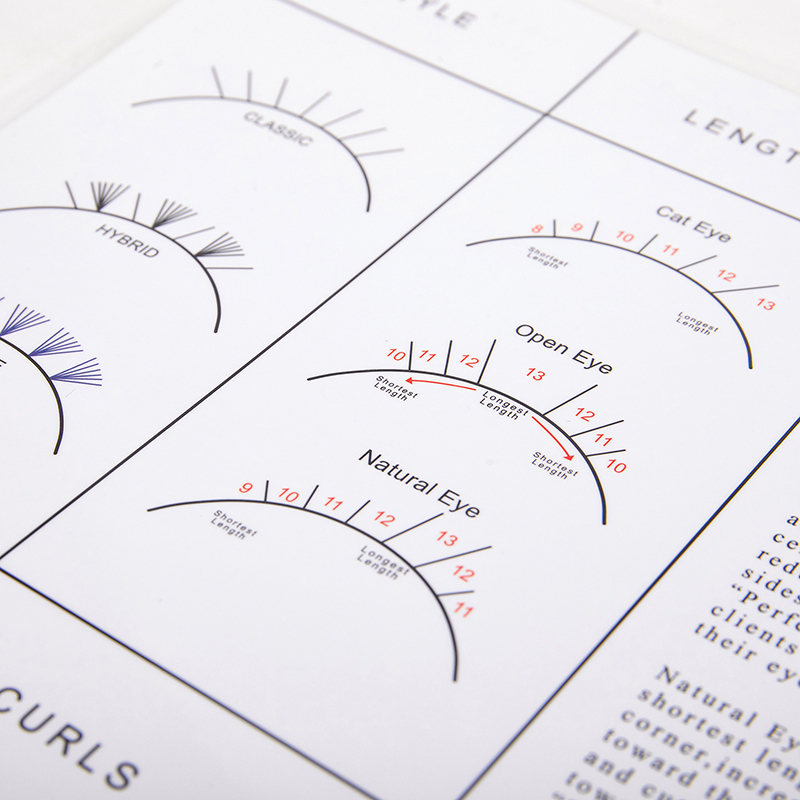 CLASSIC
HYBRID
Cat Eye
8 9 10 11 12 13
Shortest
Length
Longest
Length
Open Eye
10 11 12 13 12 11 10
Shortest
Length
Longest
Length
Shortest
Length
Natural Eye
9 10 11 12 13 12 11
Shortest
Length
Longest
Length
CURLS
sides
"Perfe
clients
their eye
Natural Ey
shortest len
corner,incre
toward th
and cu
tow